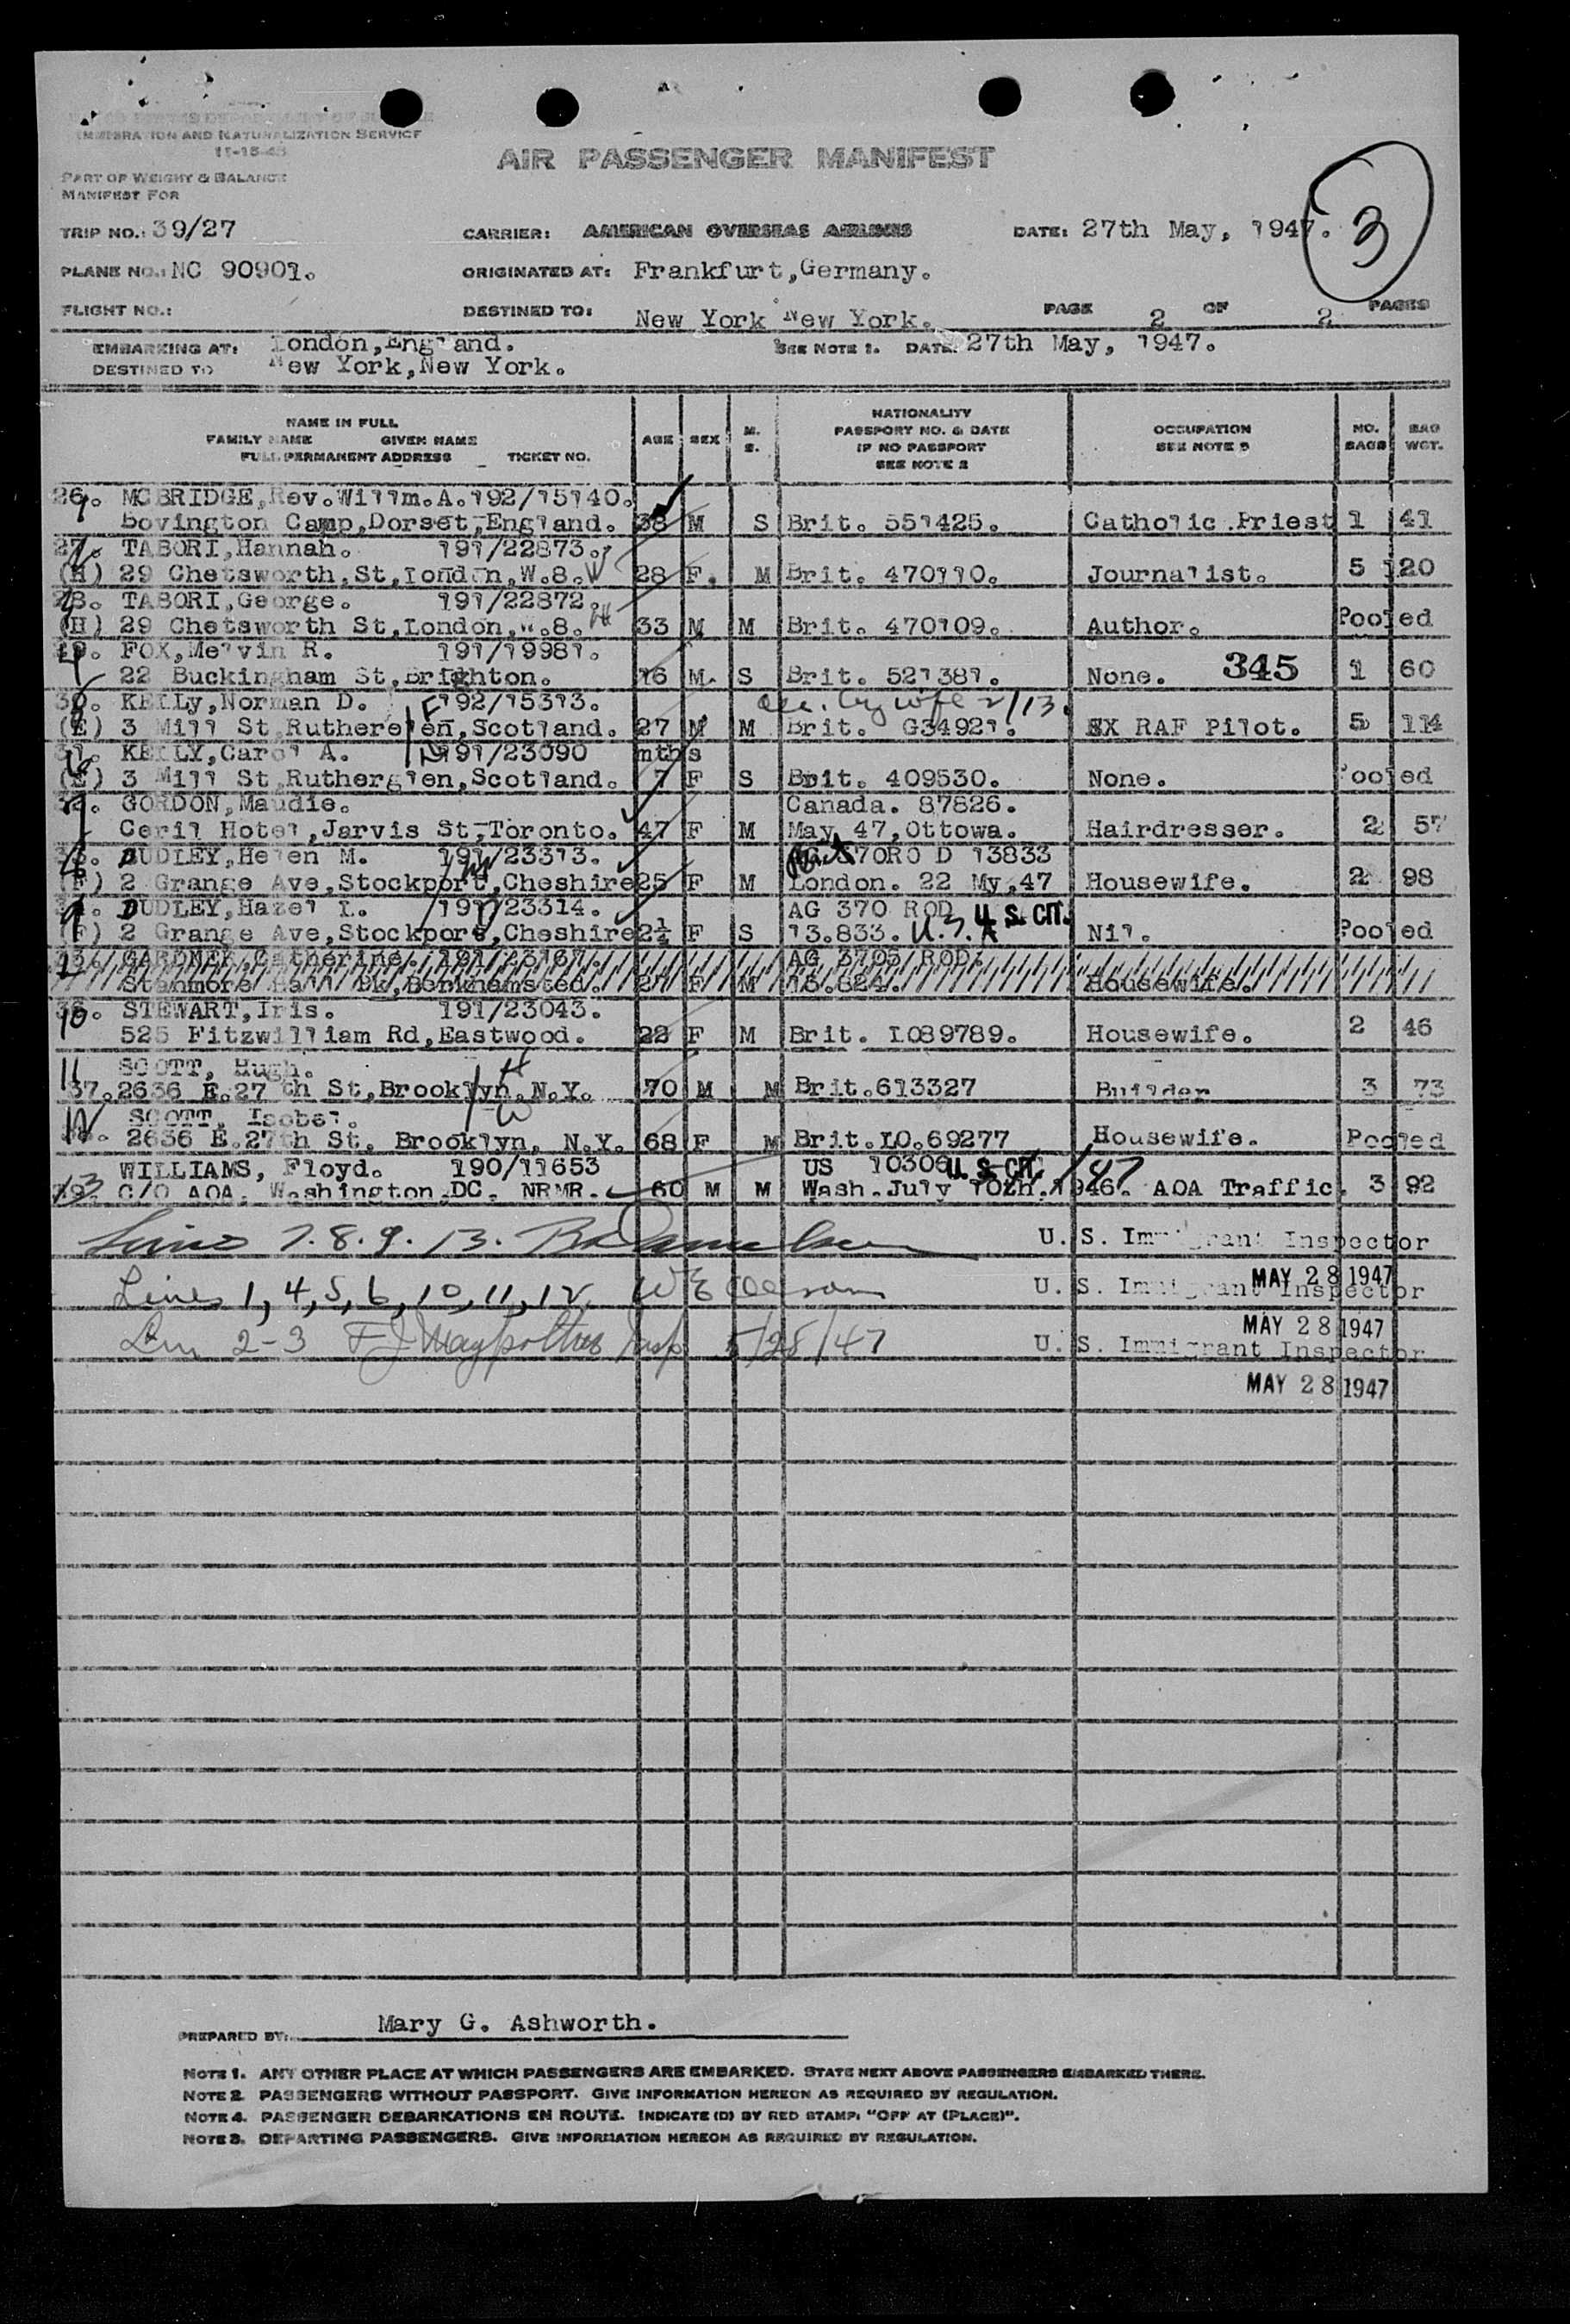 IMMIGRATION AND NATURALIZATION SERVICE
11-15-45
PART OF WEIGHT & BALANCE
MANIFEST FOR
AIR PASSENGER MANIFEST
3
TRIP NO.: 39/27 CARRIER: AMERICAN OVERSEAS AIRLINES DATE: 27th May, 1947.
PLANE NO.: NC 90901. ORIGINATED AT: Frankfurt,Germany.
FLIGHT NO.: DESTINED TO: New York New York. PAGE 2 OF 2 PAGES
EMBARKING AT: London,England. SEE NOTE 1. DATE: 27th May, 1947.
DESTINED TO New York,New York.
NAME IN FULL
FAMILY NAME GIVEN NAME
FULL PERMANENT ADDRESS TICKET NO.
AGE SEX M. S.
NATIONALITY
PASSPORT NO. & DATE
IF NO PASSPORT
SEE NOTE 2
OCCUPATION
SEE NOTE 5
NO. BAGS
BAG WGT.
26. MCBRIDGE,Rev.Willm.A.192/15140.
Bovington Camp,Dorset,England. 38 M S Brit. 551425. Catholic Priest 1 41
27. TABORI,Hannah. 191/22873.
(H) 29 Chetsworth,St,London,W.8. W 28 F. M Brit. 470110. Journalist. 5 120
28. TABORI,George. 191/22872.
(H) 29 Chetsworth St,London,W.8. H 33 M M Brit. 470109. Author. Pooled
29. FOX,Melvin R. 191/19981.
4 22 Buckingham St,Brighton. 16 M. S Brit. 521381. None. 345 1 60
30. KELLy,Norman D. F 192/15313. wife 2/13.
(E) 3 Mill St,Rutherglen,Scotland. 27 M M Brit. G34921. EX RAF Pilot. 5 114
31. KELLY,Carol A. D 191/23090 mths
(E) 3 Mill St,Rutherglen,Scotland. 7 F S Brit. 409530. None. Pooled
32. GORDON,Maudie. Canada. 87826.
Ceril Hotel,Jarvis St,Toronto. 47 F M May 47,Ottowa. Hairdresser. 2 57
33. DUDLEY,Helen M. 191/23313. 370RO D 13833
(F) 2 Grange Ave,Stockport,Cheshire 25 F M London. 22 My,47 Housewife. 2 98
34. DUDLEY,Hazel I. 191/23314. AG 370 ROD U.S. CIT.
(F) 2 Grange Ave,Stockport,Cheshire 2½ F S 13.833. U.S.A Nil. Pooled
35. GARDNER,Catherine. 191/23167. AG 3705 ROD.
Stanmore Hall Pk,Berkhamsted. 27 F M 13.824. Housewife.
36. STEWART,Iris. 191/23043.
10 525 Fitzwilliam Rd,Eastwood. 22 F M Brit. LO89789. Housewife. 2 46
11 SCOTT, Hugh. H
37. 2636 E.27 th St,Brooklyn,N.Y. 70 M M Brit.613327 Builder 3 73
12 SCOTT, Isobel. W
2636 E.27th St, Brooklyn, N.Y. 68 F M Brit.LO.69277 Housewife. Pooled
13 WILLIAMS, Floyd. 190/11653 US 10306 U.S. CIT. /47
39. C/O AOA. Washington.DC. NRMR. 60 M M Wash.July 10th.1946. AOA Traffic. 3 92
Lines 7.8.9.13. U. S. Immigrant Inspector
MAY 28 1947
Lines 1,4,5,6,10,11,12. U. S. Immigrant Inspector
MAY 28 1947
Lin 2-3 Insp 5/28/47 U. S. Immigrant Inspector
MAY 28 1947
PREPARED BY: Mary G. Ashworth.
NOTE 1. ANY OTHER PLACE AT WHICH PASSENGERS ARE EMBARKED. STATE NEXT ABOVE PASSENGERS EMBARKED THERE.
NOTE 2. PASSENGERS WITHOUT PASSPORT. GIVE INFORMATION HEREON AS REQUIRED BY REGULATION.
NOTE 4. PASSENGER DEBARKATIONS EN ROUTE. INDICATE (D) BY RED STAMP: "OFF AT (PLACE)".
NOTE 3. DEPARTING PASSENGERS. GIVE INFORMATION HEREON AS REQUIRED BY REGULATION.